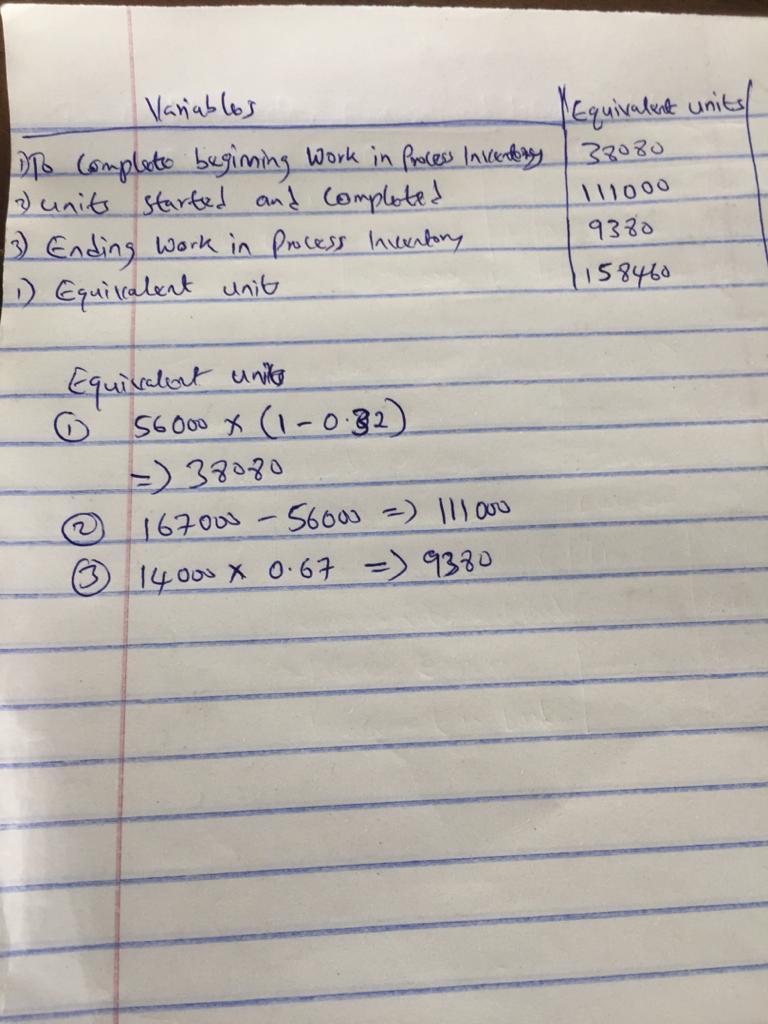 Variables | Equivalent units
1) To Complete beginning Work in Process Inventory | 38080
2) units started and Completed | 111000
3) Ending Work in Process Inventory | 9380
1) Equivalent unit | 158460
Equivalent units
① 56000 x (1 - 0.32)
=) 38080
② 167000 - 56000 =) 111000
③ 14000 x 0.67 =) 9380